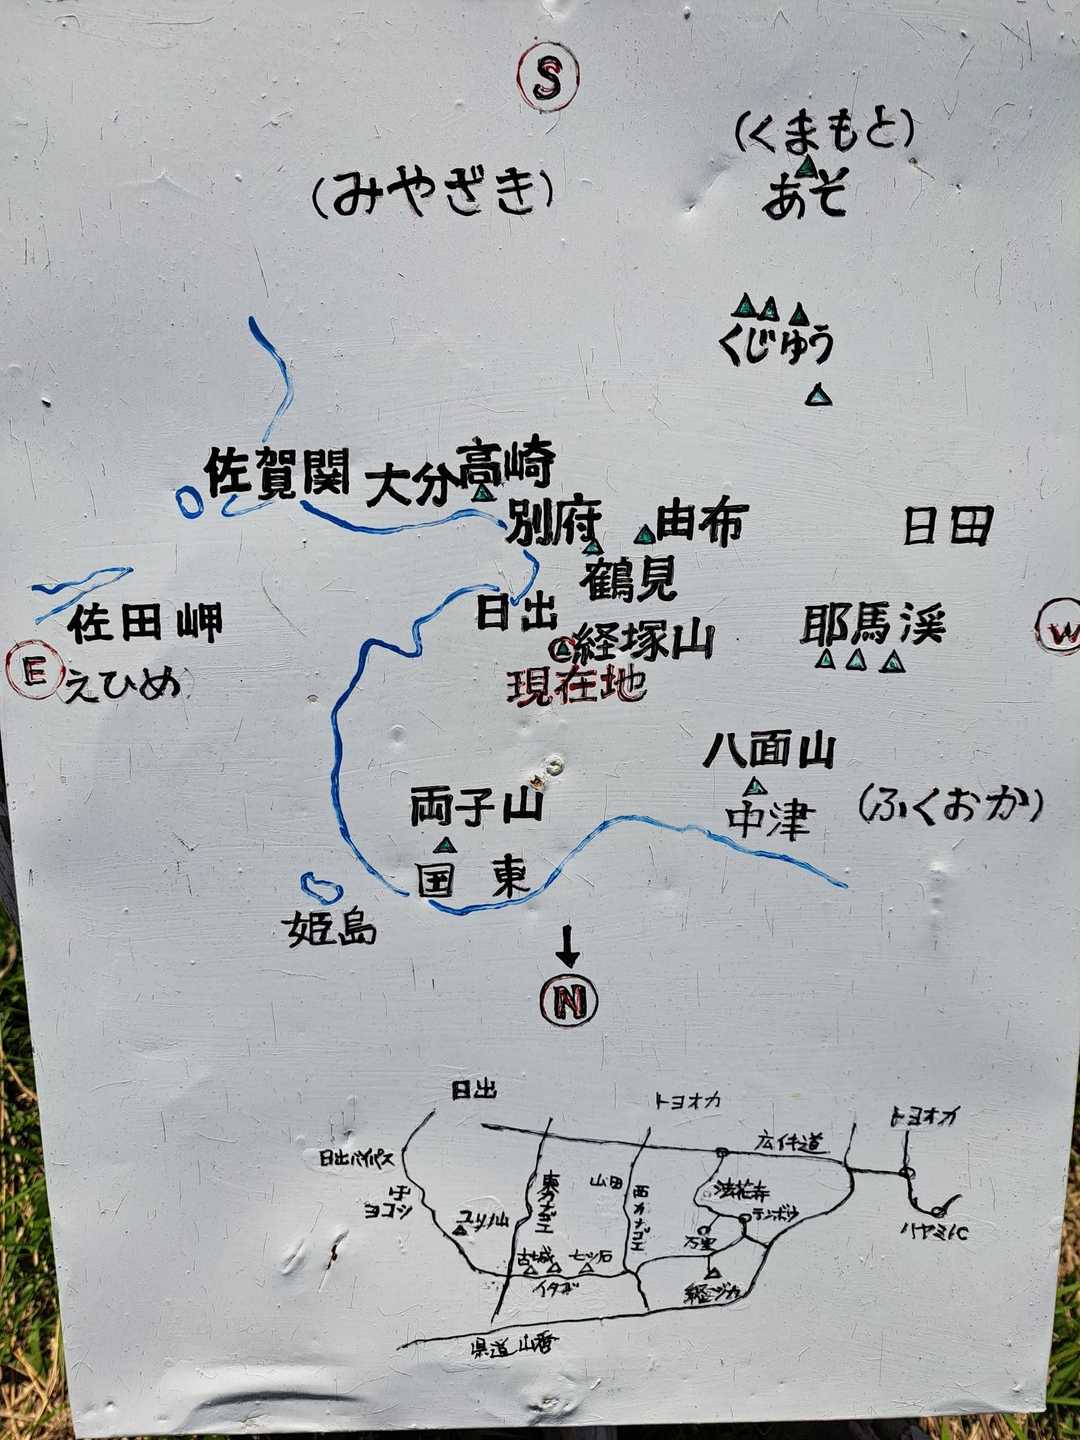 S
(くまもと)
(みやざき)
あそ
くじゅう
佐賀関
大分
高崎
別府
由布
日田
鶴見
日出
佐田岬
経塚山
耶馬渓
E
W
えひめ
現在地
八面山
両子山
中津
(ふくおか)
国東
姫島
N
日出
トヨオカ
トヨオカ
日出バイパス
山田
法花寺
テンボウ
万里
ハヤミIC
ヨコシ
古城
七ツ石
イタガ
経ヅカ
県道山香